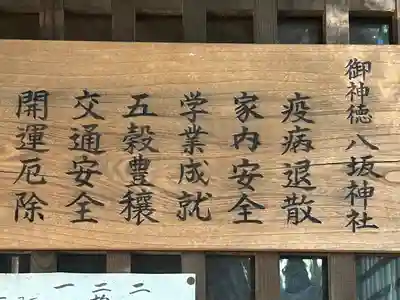 御神徳 八坂神社
疫病退散
家内安全
学業成就
五穀豊穣
交通安全
開運厄除